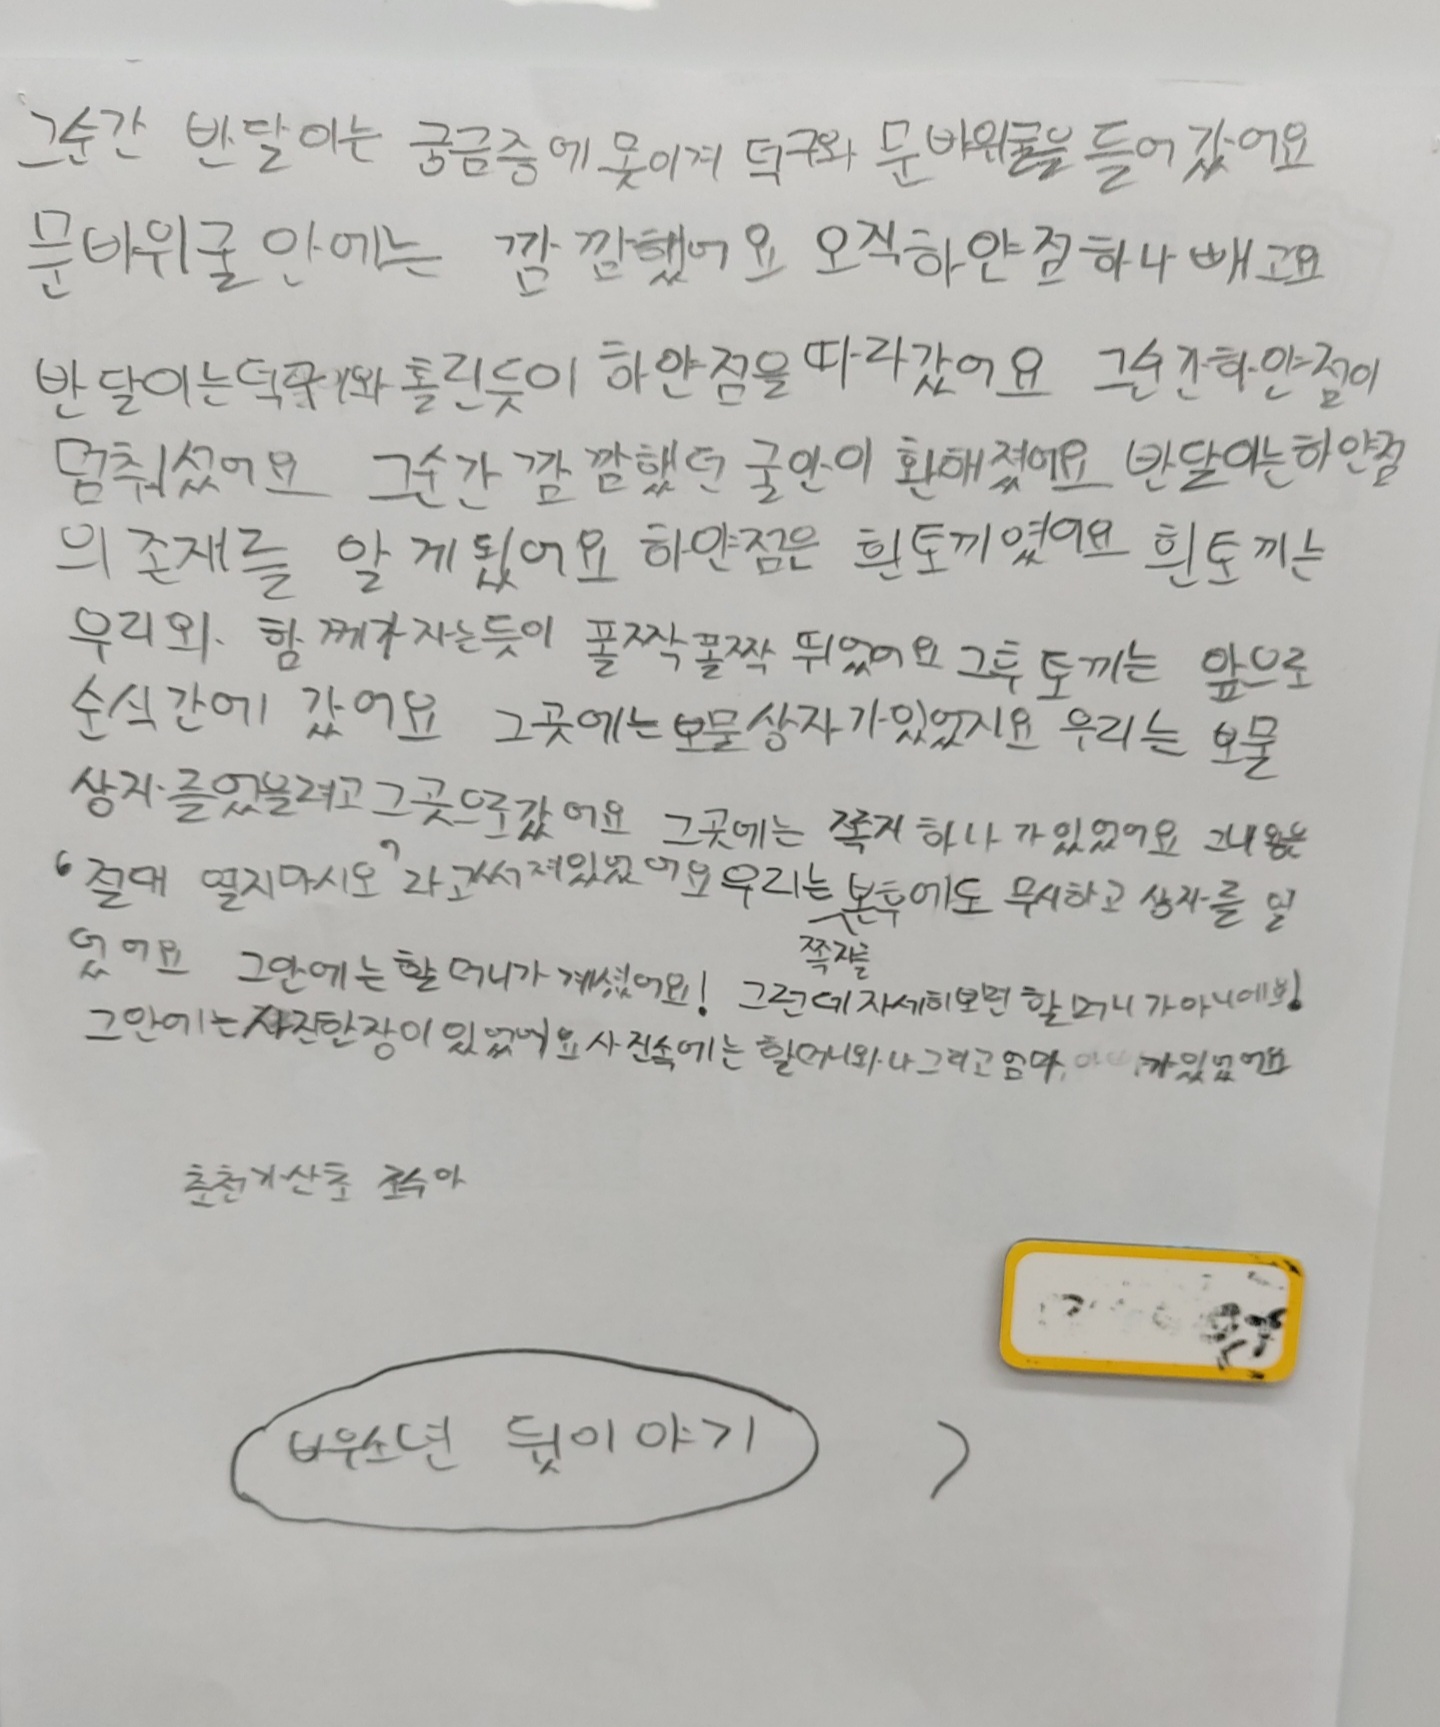 그순간 반달이는 궁금증에 못이겨 덕구와 문바위굴을 들어갔어요
문바위굴 안에는 깜깜했어요 오직하얀점하나 빼고요
반달이는덕구와 홀린듯이 하얀점을 따라갔어요 그순간하얀점이
멈춰섰어요 그순간 깜깜했던 굴안이 환해졌어요 반달이는하얀점
의 존재를 알게됬어요 하얀점은 흰토끼였어요 흰토끼는
우리와 함께가자는듯이 폴짝폴짝 뛰었어요 그후 토끼는 앞으로
순식간에 갔어요 그곳에는 보물상자가있었지요 우리는 보물
상자를 그곳으로갔어요 그곳에는 쪽지 하나가있었어요 그내용은
'절대 열지마시오'라고써져있었어요 우리는 본후에도 무시하고 상자를 열
쪽지를
었어요 그안에는 할머니가 계셨어요! 그런데 자세히보면 할머니가아니에요!
그안에는 사진한장이 있었어요 사진속에는 할머니와 나 그리고 엄마, 가있었어요
춘천가산초 조수아
바우소년 뒷이야기